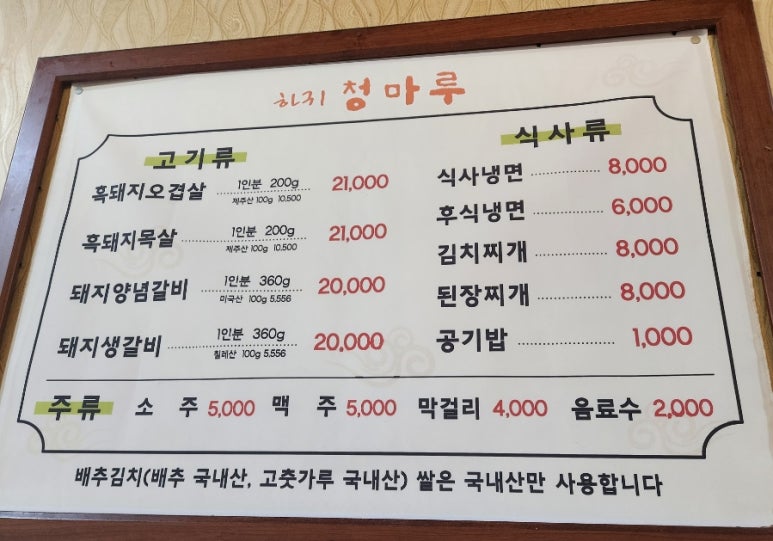 하귀 청마루
고기류
흑돼지오겹살 1인분 200g 21,000
제주산 100g 10.500
흑돼지목살 1인분 200g 21,000
제주산 100g 10.500
돼지양념갈비 1인분 360g 20,000
미국산 100g 5,556
돼지생갈비 1인분 360g 20,000
칠레산 100g 5,556
식사류
식사냉면 8,000
후식냉면 6,000
김치찌개 8,000
된장찌개 8,000
공기밥 1,000
주류 소 주 5,000 맥 주 5,000 막걸리 4,000 음료수 2,000
배추김치(배추 국내산, 고춧가루 국내산) 쌀은 국내산만 사용합니다